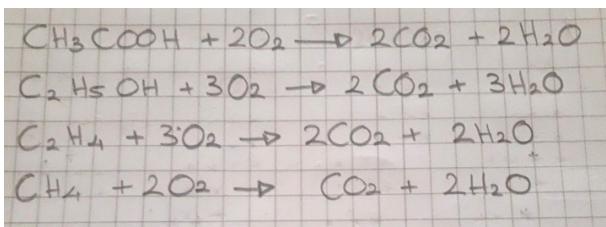 CH3COOH + 2O2 → 2CO2 + 2H2O
C2H5OH + 3O2 → 2CO2 + 3H2O
C2H4 + 3O2 → 2CO2 + 2H2O
CH4 + 2O2 → CO2 + 2H2O